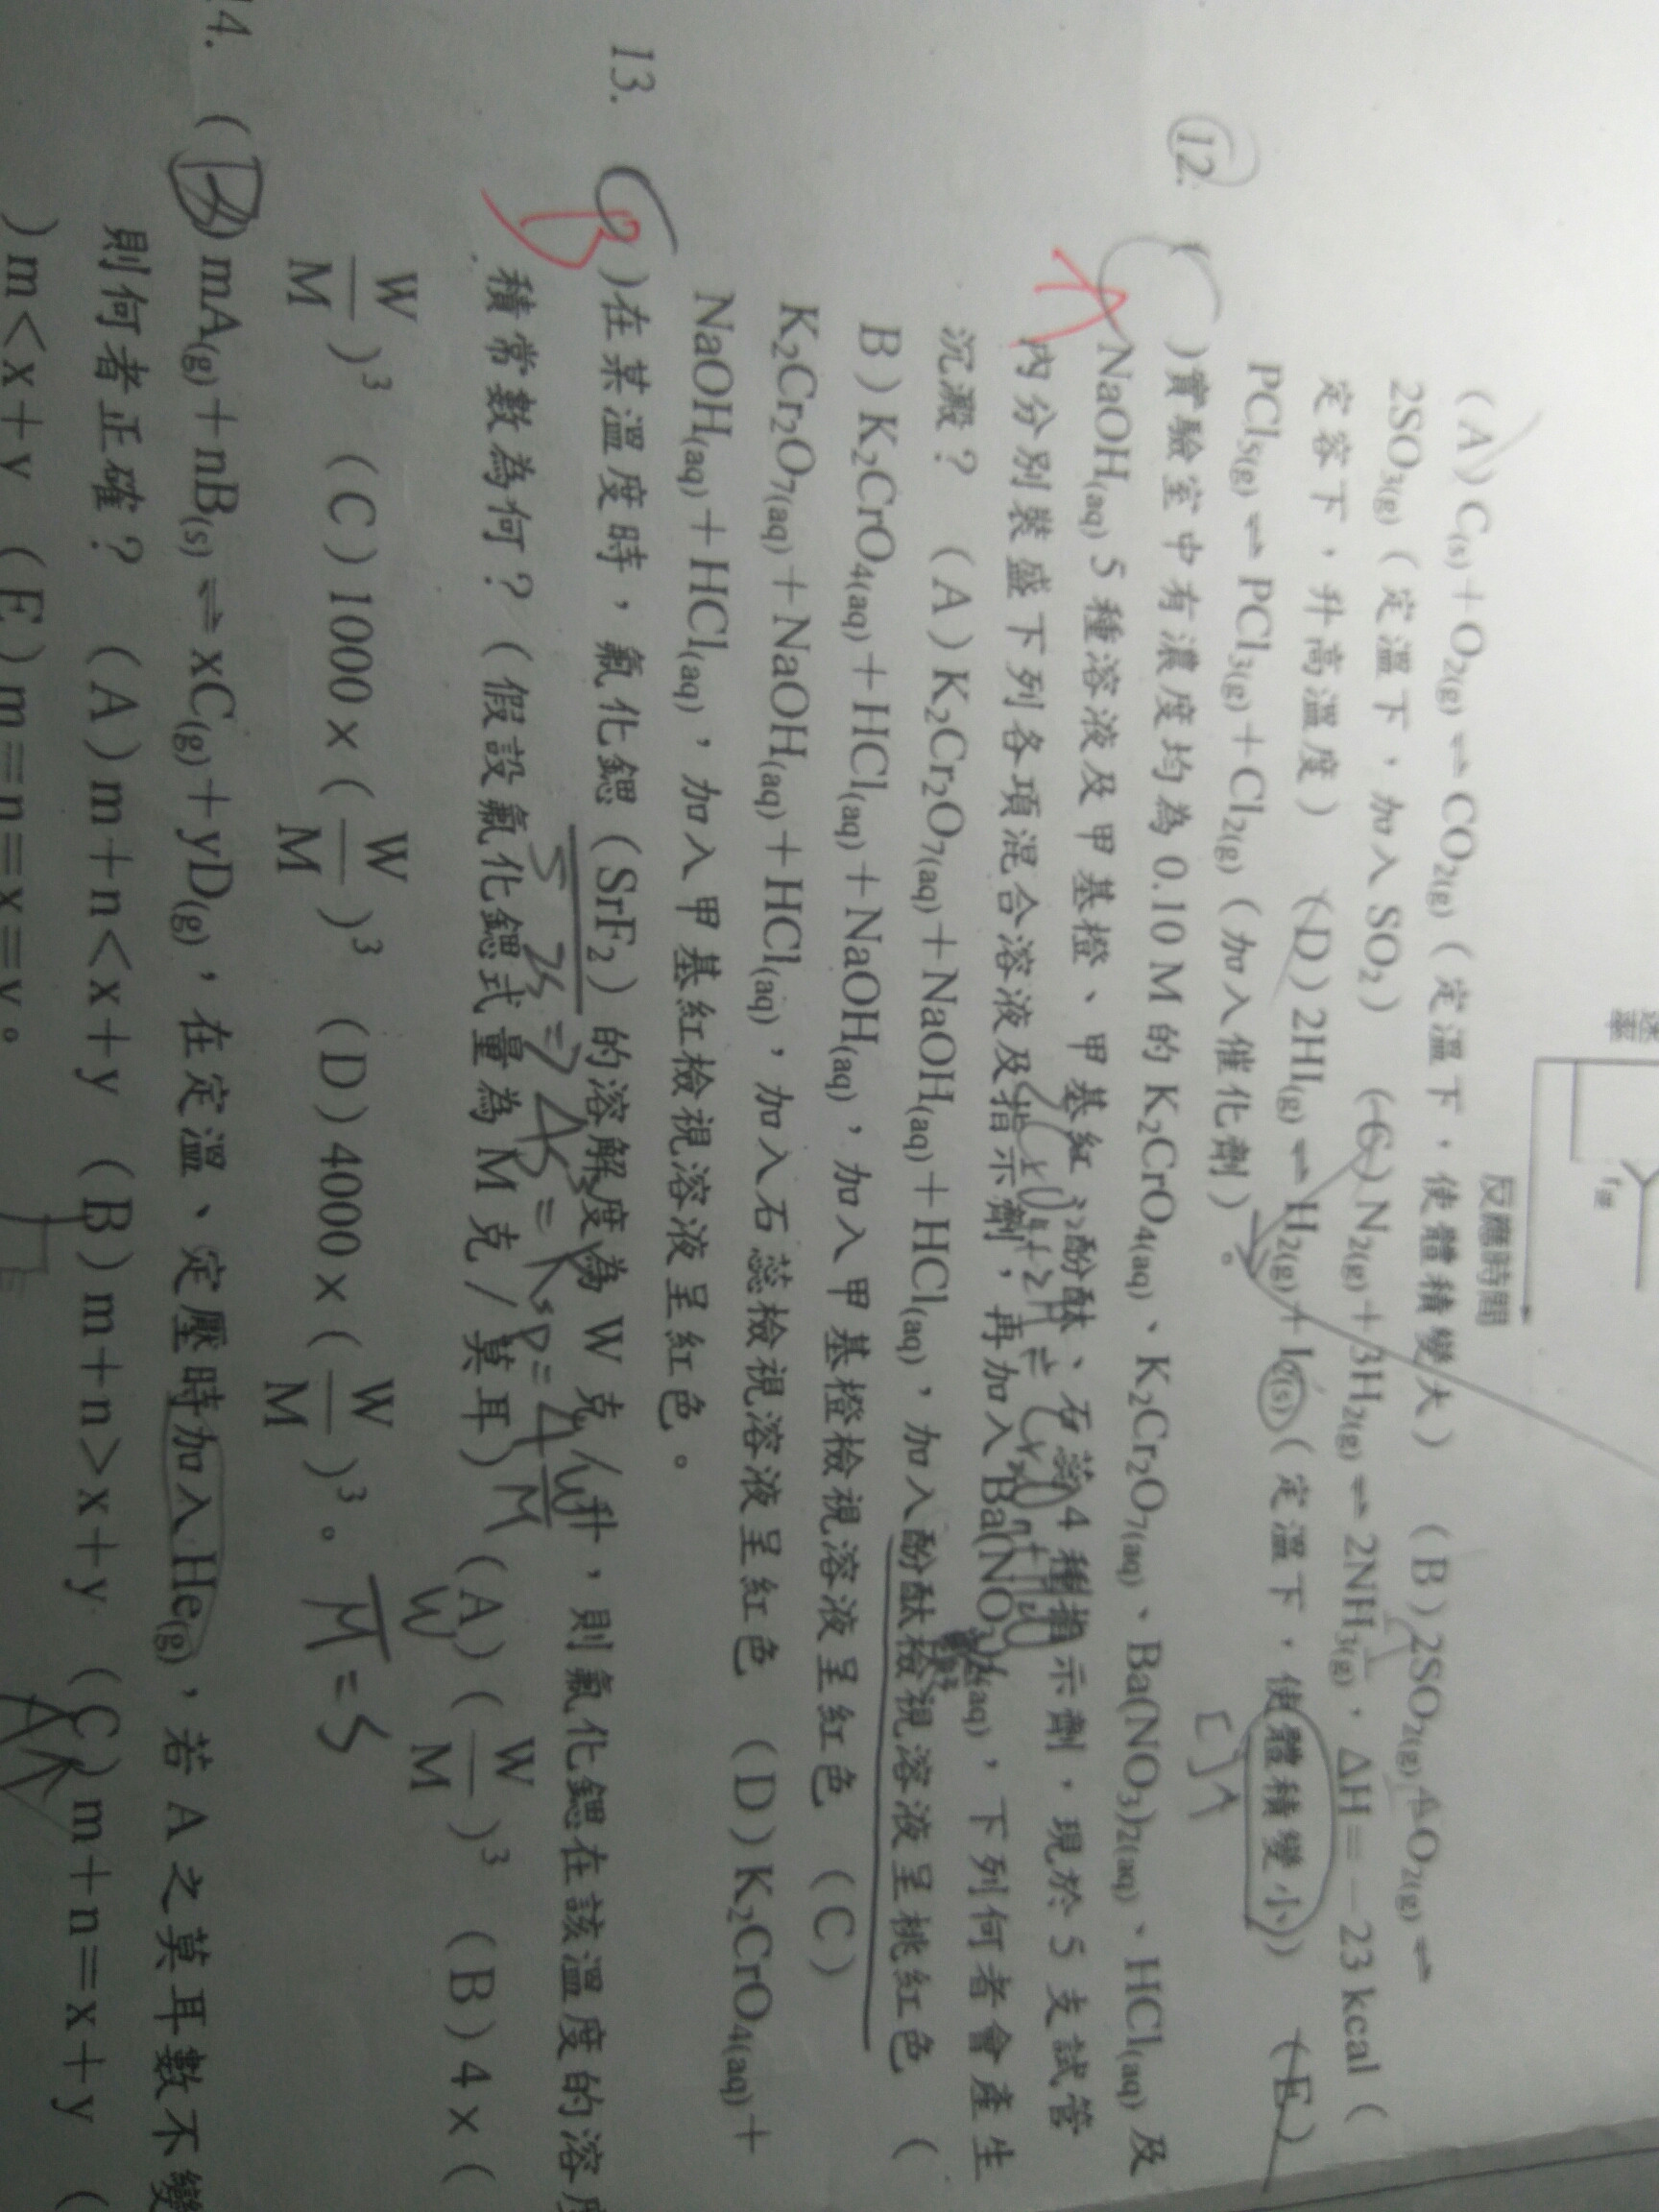 速率
r逆
反應時間
(A) C(s)+O₂(g)⇌CO₂(g)(定溫下,使體積變大) (B) 2SO₂(g)+O₂(g)⇌
2SO₃(g)(定溫下,加入SO₂) (C) N₂(g)+3H₂(g)⇌2NH₃(g),ΔH=-23 kcal(
定容下,升高溫度) (D) 2HI(g)⇌H₂(g)+I₂(s)(定溫下,使體積變小) (E)
PCl₅(g)⇌PCl₃(g)+Cl₂(g)(加入催化劑)。
12. ( A )實驗室中有濃度均為 0.10 M 的 K₂CrO₄(aq)、K₂Cr₂O₇(aq)、Ba(NO₃)₂(aq)、HCl(aq) 及
NaOH(aq) 5 種溶液及甲基橙、甲基紅、酚酞、石蕊 4 種指示劑,現於 5 支試管
內分別裝盛下列各項混合溶液及指示劑,再加入 Ba(NO₃)₂(aq),下列何者會產生
沉澱? (A) K₂Cr₂O₇(aq)+NaOH(aq)+HCl(aq),加入酚酞檢視溶液呈桃紅色 (
B) K₂CrO₄(aq)+HCl(aq)+NaOH(aq),加入甲基橙檢視溶液呈紅色 (C)
K₂Cr₂O₇(aq)+NaOH(aq)+HCl(aq),加入石蕊檢視溶液呈紅色 (D) K₂CrO₄(aq)+
NaOH(aq)+HCl(aq),加入甲基紅檢視溶液呈紅色。
13. ( B )在某溫度時,氟化鍶(SrF₂)的溶解度為 W 克/升,則氟化鍶在該溫度的溶度
S 2S ⇒ 4S³ = Ksp = 4
積常數為何?(假設氟化鍶式量為 M 克/莫耳) (A) (W/M)³ (B) 4×(
W/M)³ (C) 1000×(W/M)³ (D) 4000×(W/M)³。
W/M = S
14. ( )mA(g)+nB(s)⇌xC(g)+yD(g),在定溫、定壓時加入He(g),若 A 之莫耳數不變
則何者正確? (A) m+n<x+y (B) m+n>x+y (C) m+n=x+y (
)m<x+y (E) m=n=x=y。